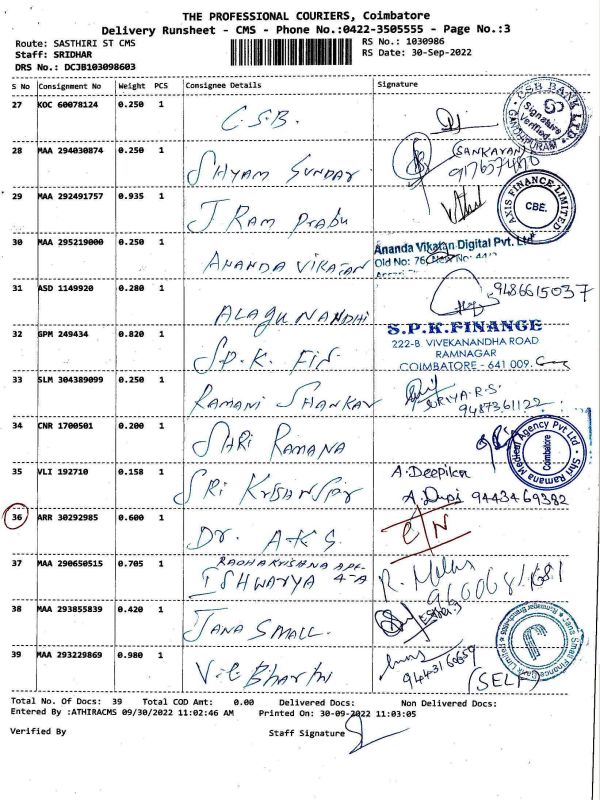 THE PROFESSIONAL COURIERS, Coimbatore
Delivery Runsheet - CMS - Phone No.:0422-3505555 - Page No.:3
Route: SASTHIRI ST CMS
RS No.: 1030986
Staff: SRIDHAR
RS Date: 30-Sep-2022
DRS No.: DCJB103098603
S No Consignment No Weight PCS Consignee Details Signature
27 KOC 60078124 0.250 1 C.S.B.
CSB BANK LTD. Signature Verified GANDHIPURAM
28 MAA 294030874 0.250 1 SHYAM SUNDAR (SANKARAN)
29 MAA 292491757 0.935 1 J RAM Prabu
AXIS FINANCE LIMITED CBE.
30 MAA 295219000 0.250 1 ANANDA VIKATAN
Ananda Vikatan Digital Pvt. Ltd
Old No: 76, New No: 44/2
31 ASD 1149920 0.280 1 ALAGU NANDHI 9486615037
32 GPM 249434 0.820 1 S.P.K. FIN
S.P.K.FINANCE
222-B, VIVEKANANDHA ROAD
RAMNAGAR
COIMBATORE - 641 009.
33 SLM 304389099 0.250 1 RAMANI SHANKAR
SRIYA.R.S.
9487361122
34 CNR 1700501 0.200 1 SHRI RAMANA
Shri Ramana Medical Agency Pvt Ltd Coimbatore
35 VLI 192710 0.158 1 A.Deepika
9443469382
36 ARR 30292985 0.600 1 Dr. A.K.S.
C/N
37 MAA 290650515 0.705 1 RADHAKRISHNA APt.
ISHWARYA 4-A
38 MAA 293855839 0.420 1 JANA SMALL.
Small Finance Bank Limited
39 MAA 293229869 0.980 1
9443166659
(SELF)
Total No. Of Docs: 39 Total COD Amt: 0.00 Delivered Docs: Non Delivered Docs:
Entered By :ATHIRACMS 09/30/2022 11:02:46 AM Printed On: 30-09-2022 11:03:05
Verified By Staff Signature